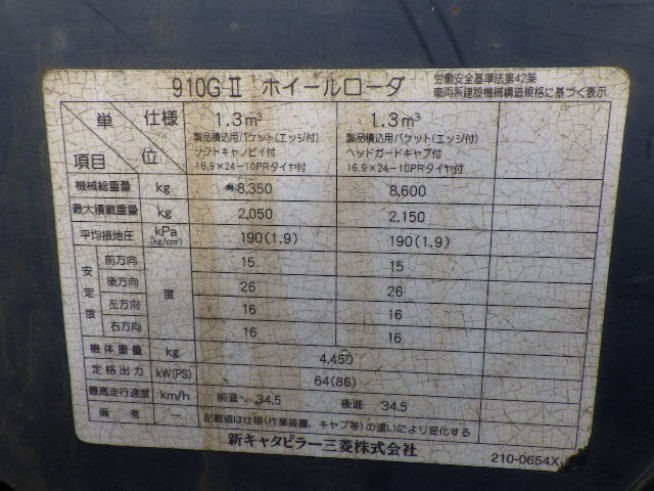 910G-II ホイールローダ
労働安全基準法第42条
車両系建設機械構造規格に基づく表示
単位 仕様 1.3m³ 1.3m³
項目
製品積込用バケット(エッジ付) 製品積込用バケット(エッジ付)
ソフトキャノピイ付 ヘッドガードキャブ付
16.9×24-10PRタイヤ付 16.9×24-10PRタイヤ付
機械総重量 kg 8,350 8,600
最大積載重量 kg 2,050 2,150
平均接地圧 kPa (kg/cm²) 190(1.9) 190(1.9)
安定度 度
前方向 15 15
後方向 26 26
左方向 16 16
右方向 16 16
機体重量 kg 4,450
定格出力 kW(PS) 64(86)
最高走行速度 km/h 前進 34.5 後進 34.5
備考 — 記載値は仕様(作業装置、キャブ等)の違いにより変化する
新キャタピラー三菱株式会社
210-0654X